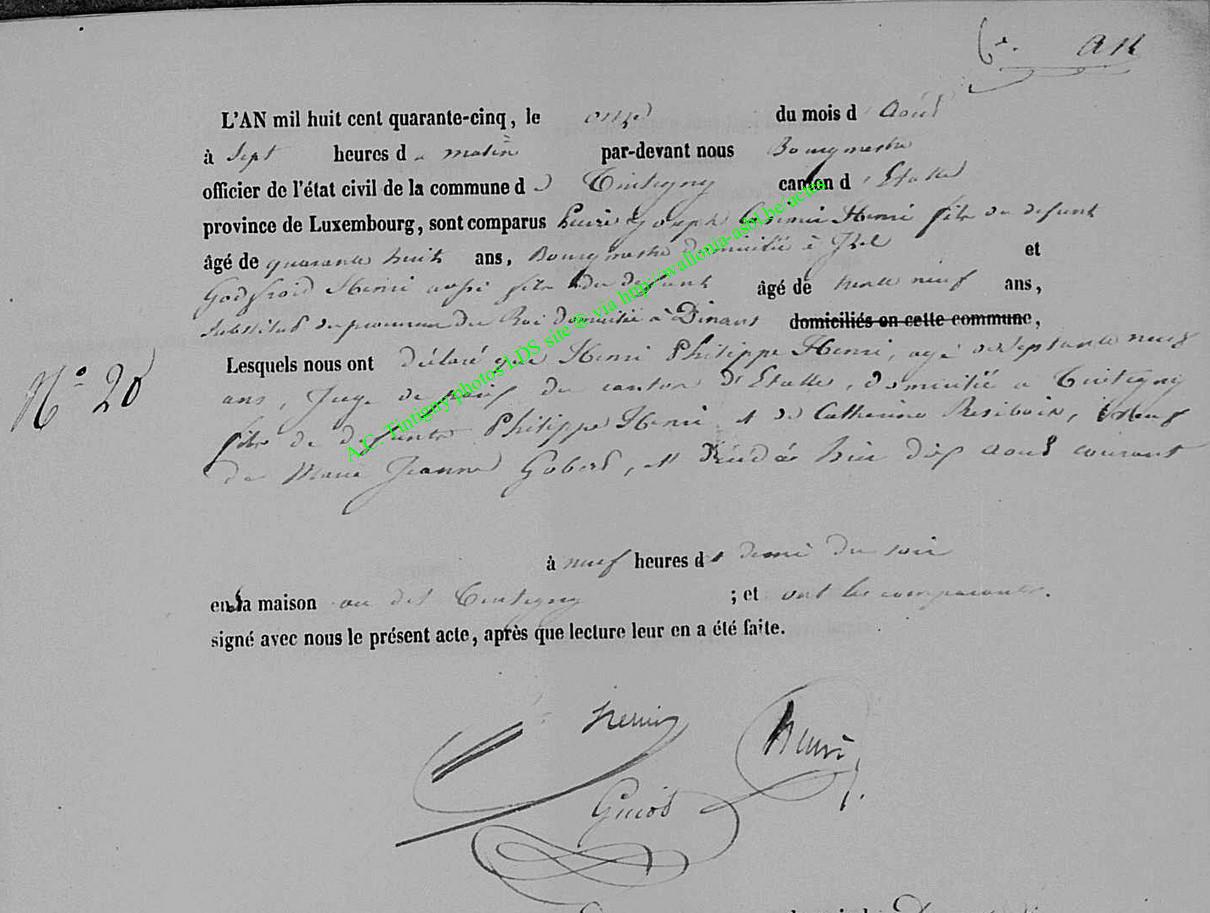 L'AN mil huit cent quarante-cinq, le onze du mois d'Août
à Sept heures du matin par-devant nous Bourgmestre
officier de l'état civil de la commune de Tintigny canton d'Etalle
province de Luxembourg, sont comparus Henri Joseph Henri fils du défunt
âgé de quarante huit ans, Bourgmestre domicilié à et
Godfroid Henri aussi fils du défunt âgé de trente neuf ans,
Substitut du procureur du Roi domicilié à Dinant domiciliés en cette commune,
Lesquels nous ont déclaré que Henri Philippe Henri, agé de septante neuf
ans, Juge de paix du canton d'Etalle, domicilié à Tintigny
fils de défunts Philippe Henri et de Catherine veuf
de Marie Jeanne Gobert, est décédé hier dix aout courant
N° 20
à neuf heures et demie du soir
en sa maison au dit Tintigny ; et ont les comparants.
signé avec nous le présent acte, après que lecture leur en a été faite.
Henri
Henri
Guiot
A.C. Tintigny photos LDS site @ via http://wallonia-asbl.be/actes